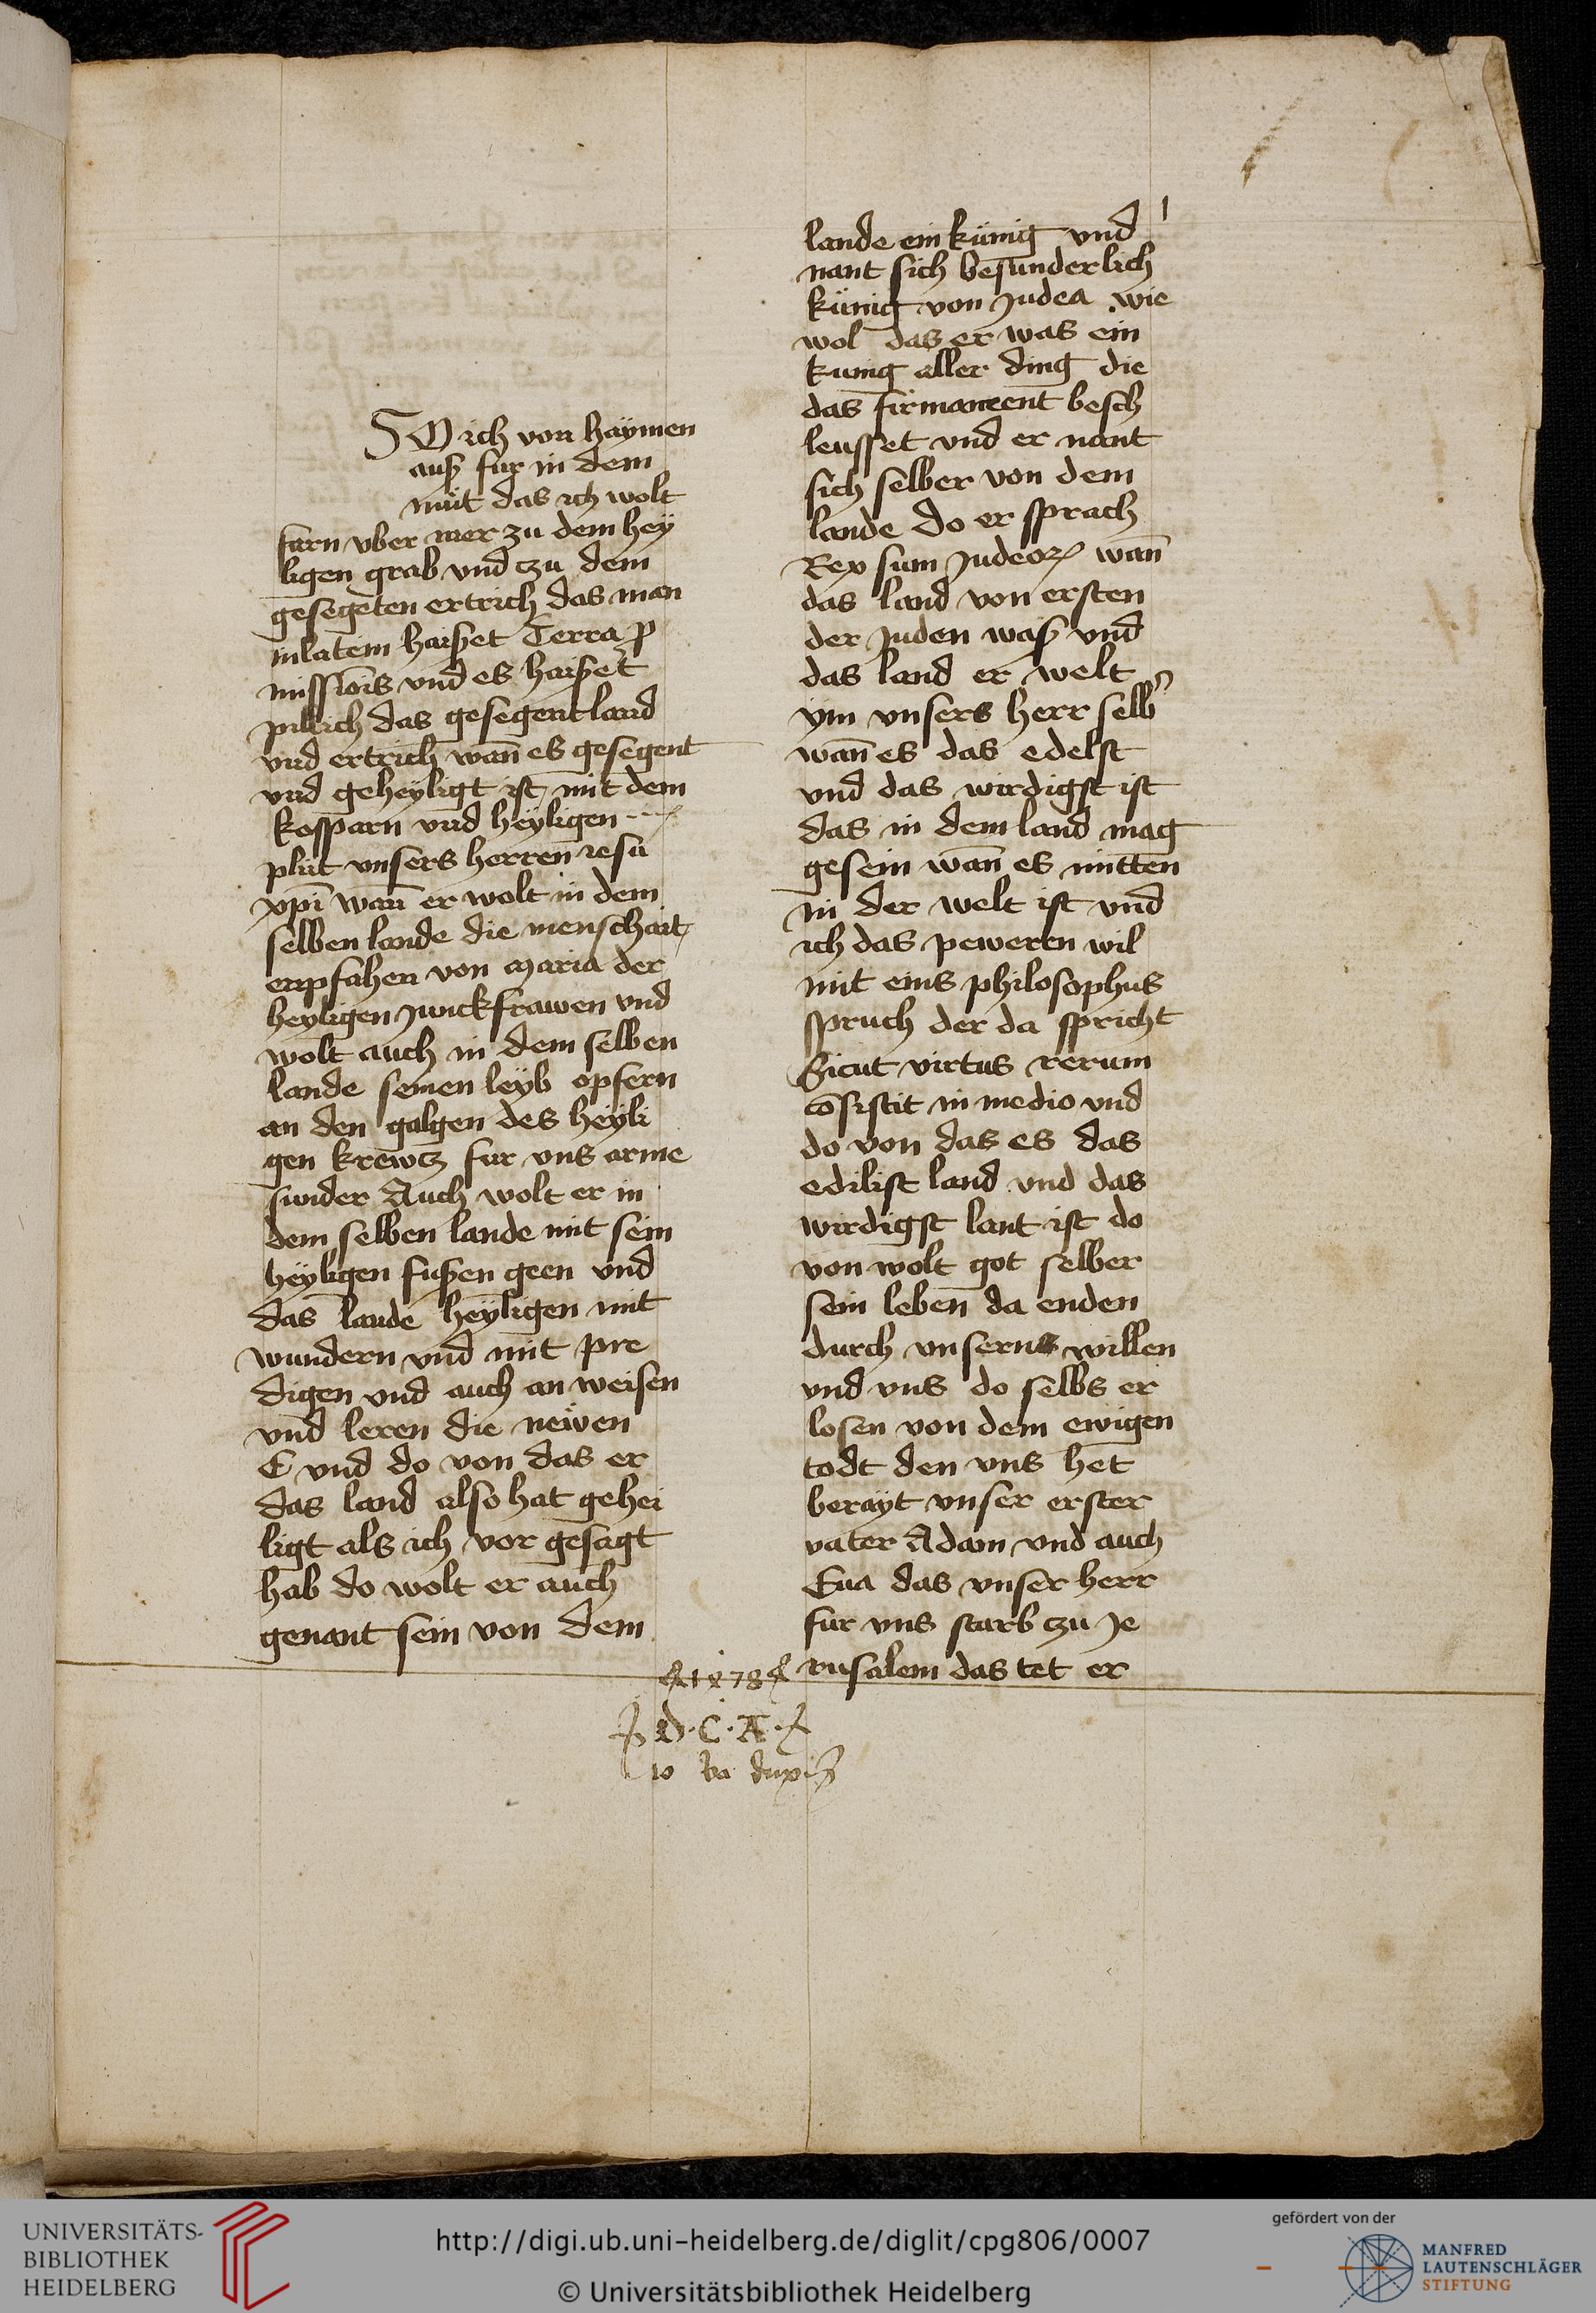 1
DO ich von haymen
auß fur in dem
mut das ich wolt
farn vber mer zu dem hey
ligen grab vnd czu dem
gesegeten ertrich das man
in latein haißet Terra p̄
missiōis vnd es haißet
pillich das gesegent land
vnd ertrich wañ es gesegent
vnd geheyligt ist mit dem
kosparn vnd heyligen
plut vnsers herren iesu
xp̄i wañ er wolt in dem
selben lande die menschait
enpfahen von maria der
heyligen Junckfrawen vnd
wolt auch in dem selben
lande seinen leyb opfern
an den galgen des heyli
gen krewcz fur vns arme
sunder Auch wolt er in
dem selben lande mit sein
heyligen fußen geen vnd
das lande heyligen mit
wundern vnd mit pre
digen vnd auch an weisen
vnd leren die newen
E vnd do von das er
das land also hat gehei
ligt als ich vor gesagt
hab do wolt er auch
genant sein von dem
lande ein künig vnd
nant sich besunderlich
künig von Judea wie
wol das er was ein
kunig aller ding die
das firmament besch
leusset vnd er nant
sich selber von dem
lande do er sprach
Rex sum Judeoꝝ wañ
das land von ersten
der Juden waß vnd
das land er welt
ym vnsers herr selb
wañ es das edelst
vnd das wirdigst ist
das in dem land mag
gesein wañ es mitten
in der welt ist vnd
ich das peweren wil
mit eins philosophus
spruch der da spricht
Sicut virtus rerum
cōsistit in medio vnd
do von das es das
edilist land vnd das
wirdigst lant ist do
von wolt got selber
sein leben da enden
durch vnsern willen
vnd vns do selbs er
losen von dem ewigen
todt den vns het
berayt vnser erster
vater Adam vnd auch
Eua das vnser herr
fur vns starb czu Je
rusalem das tet er
1478
D. C. A.
UNIVERSITÄTS-
BIBLIOTHEK
HEIDELBERG
http://digi.ub.uni-heidelberg.de/diglit/cpg806/0007
© Universitätsbibliothek Heidelberg
gefördert von der
MANFRED
LAUTENSCHLÄGER
STIFTUNG